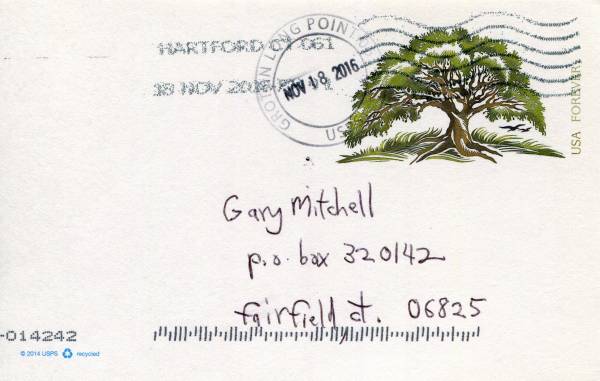 HARTFORD CT 061
18 NOV 2016
GROTON LONG POINT
NOV 18 2016
USA FOREVER
Gary Mitchell
p.o. box 320142
fairfield, ct. 06825
-014242
© 2014 USPS recycled